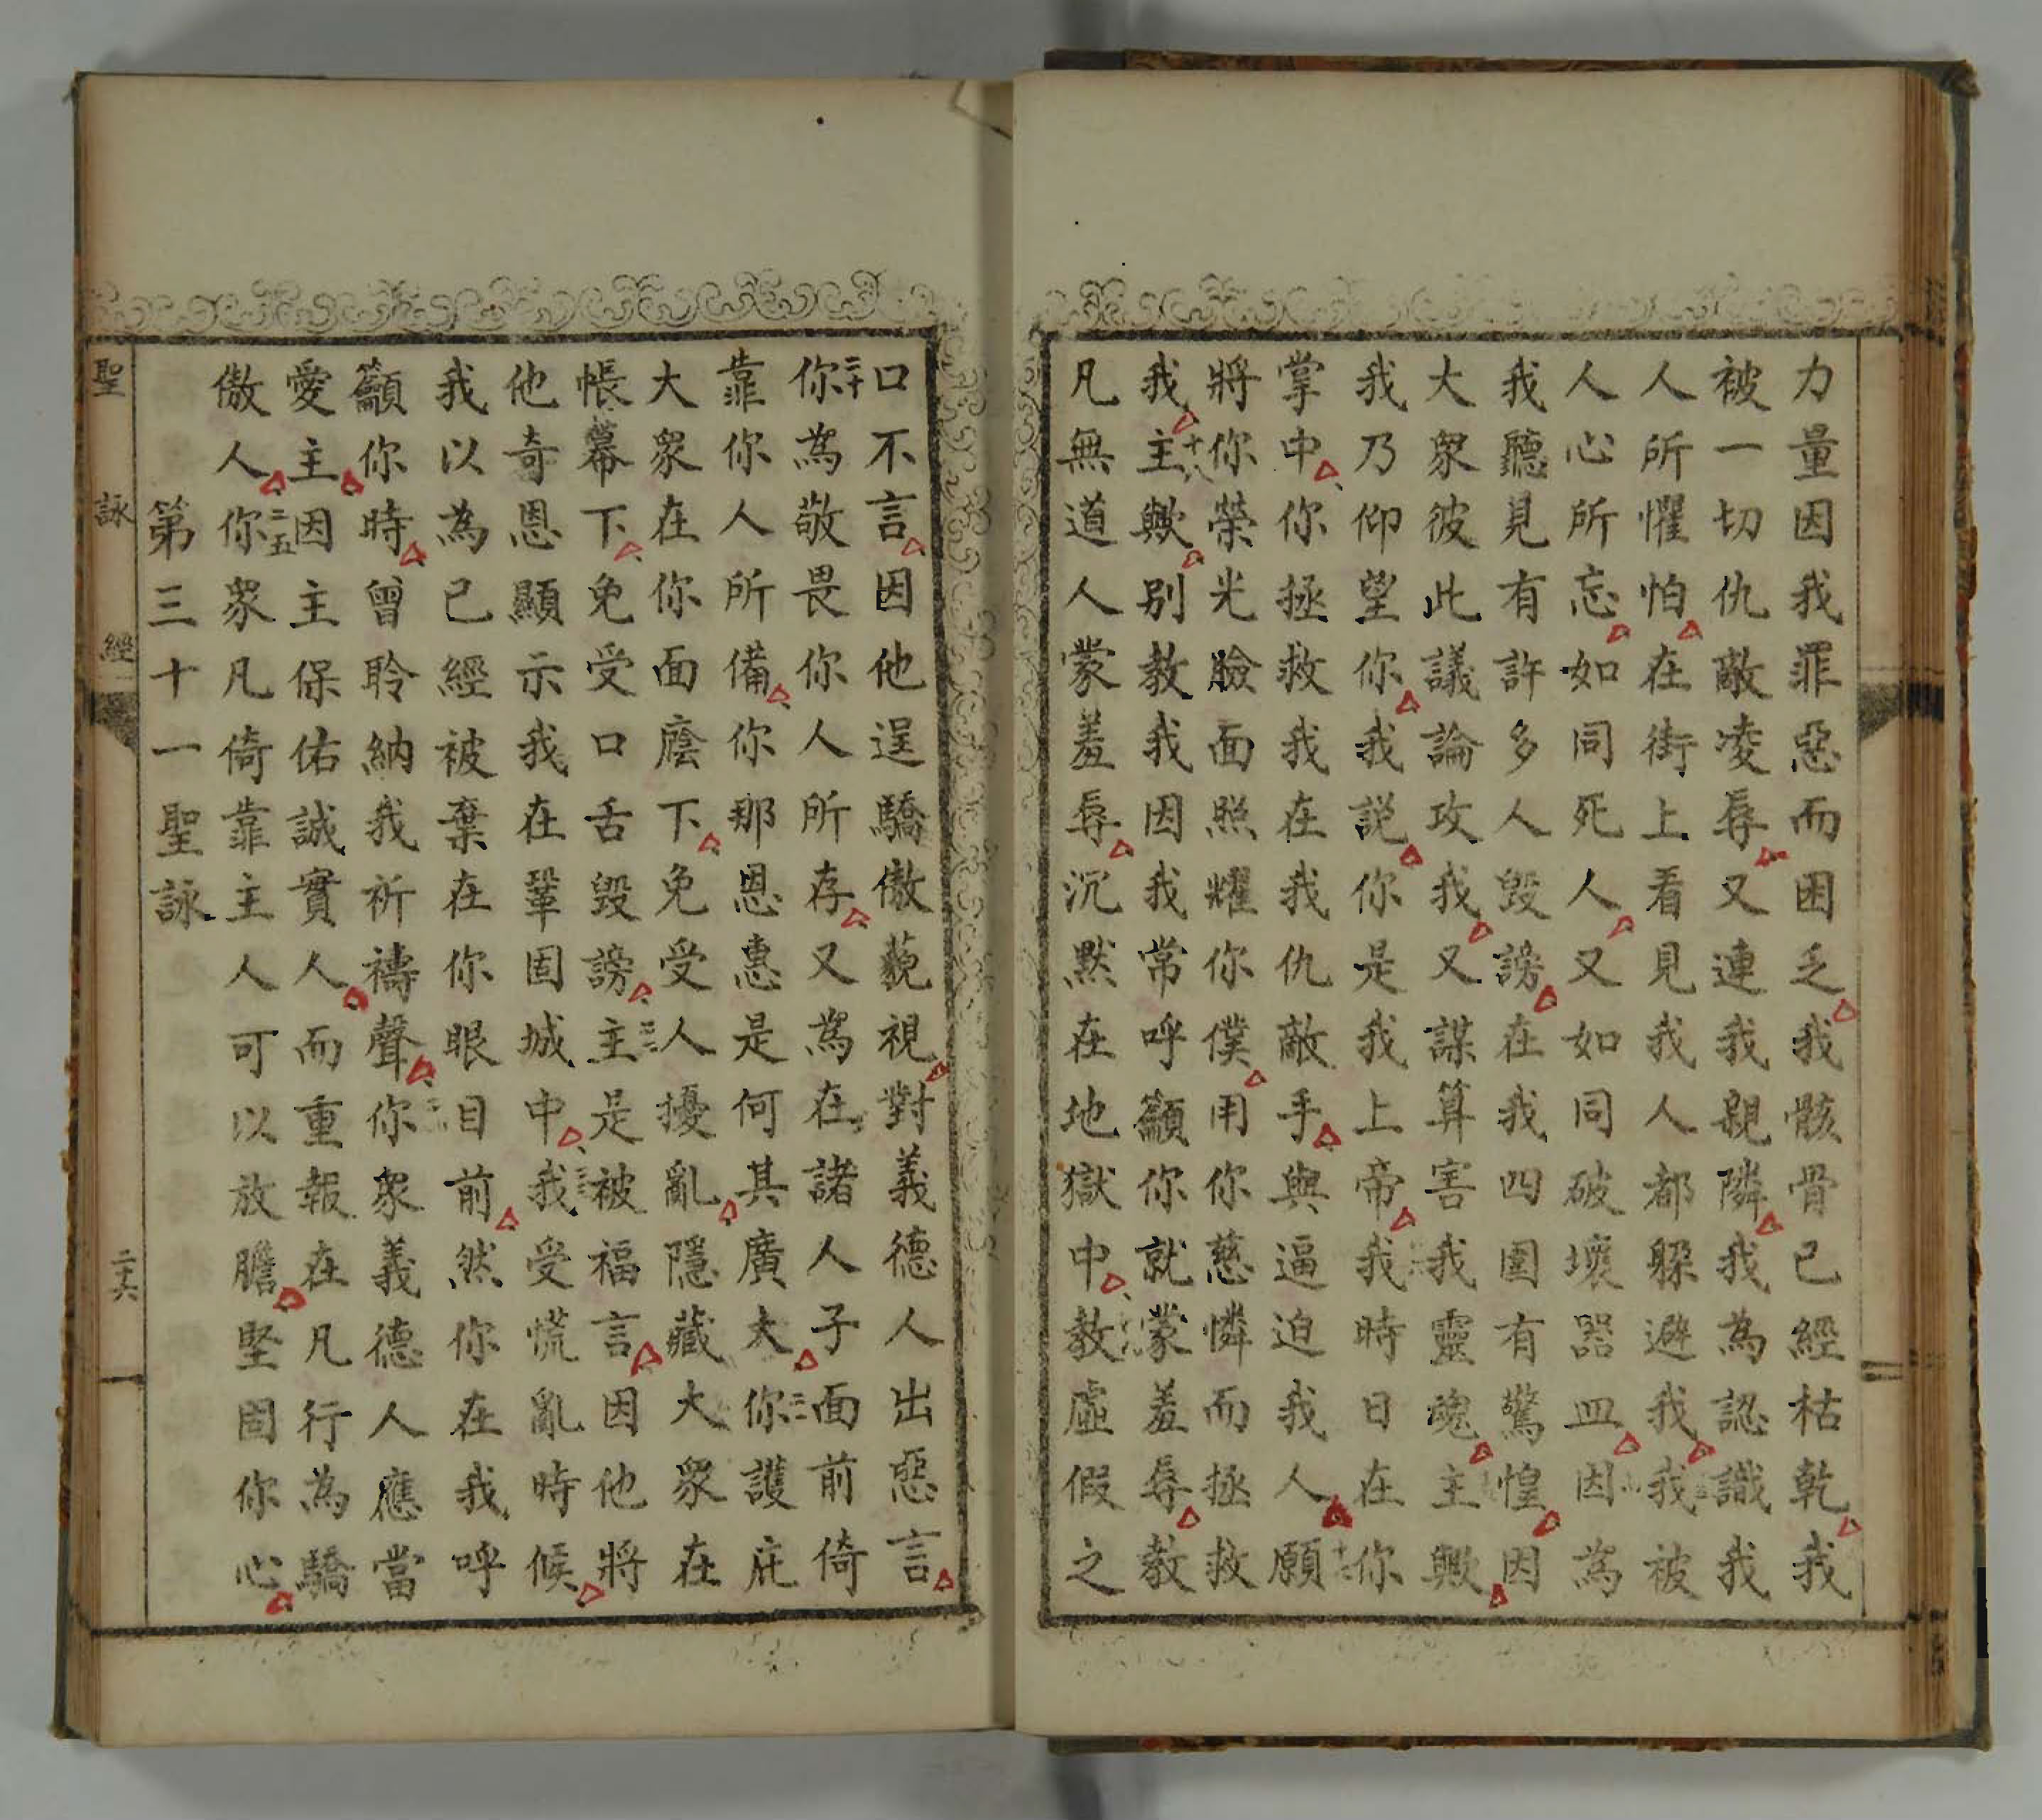 力量因我罪惡而困乏我骸骨已經枯乾我
被一切仇敵凌辱又連我親隣我為認識我
人所懼怕在街上看見我人都躲避我我被
人心所忘如同死人又如同破壞器皿因為
我聽見有許多人毀謗在我四圍有驚惶因
大衆彼此議論攻我又謀算害我靈魂主歟
我乃仰望你我説你是我上帝我時日在你
掌中你拯救我在我仇敵手與逼迫我人願
將你榮光臉面照耀你僕用你慈憐而拯救
我主歟別教我因我常呼籲你就蒙羞辱教
凡無道人蒙羞辱沉默在地獄中教虛假之
口不言因他逞驕傲藐視對義德人出惡言
你為敬畏你人所存又為在諸人子面前倚
靠你人所備你那恩惠是何其廣大你護庇
大衆在你面廕下免受人擾亂隱藏大衆在
帳幕下免受口舌毀謗主是被福言因他將
他奇恩顯示我在鞏固城中我受慌亂時候
我以為已經被棄在你眼目前然你在我呼
籲你時曾聆納我祈禱聲你衆義德人應當
愛主因主保佑誠實人而重報在凡行為驕
傲人你衆凡倚靠主人可以放膽堅固你心
第三十一聖詠
聖詠經
二十六